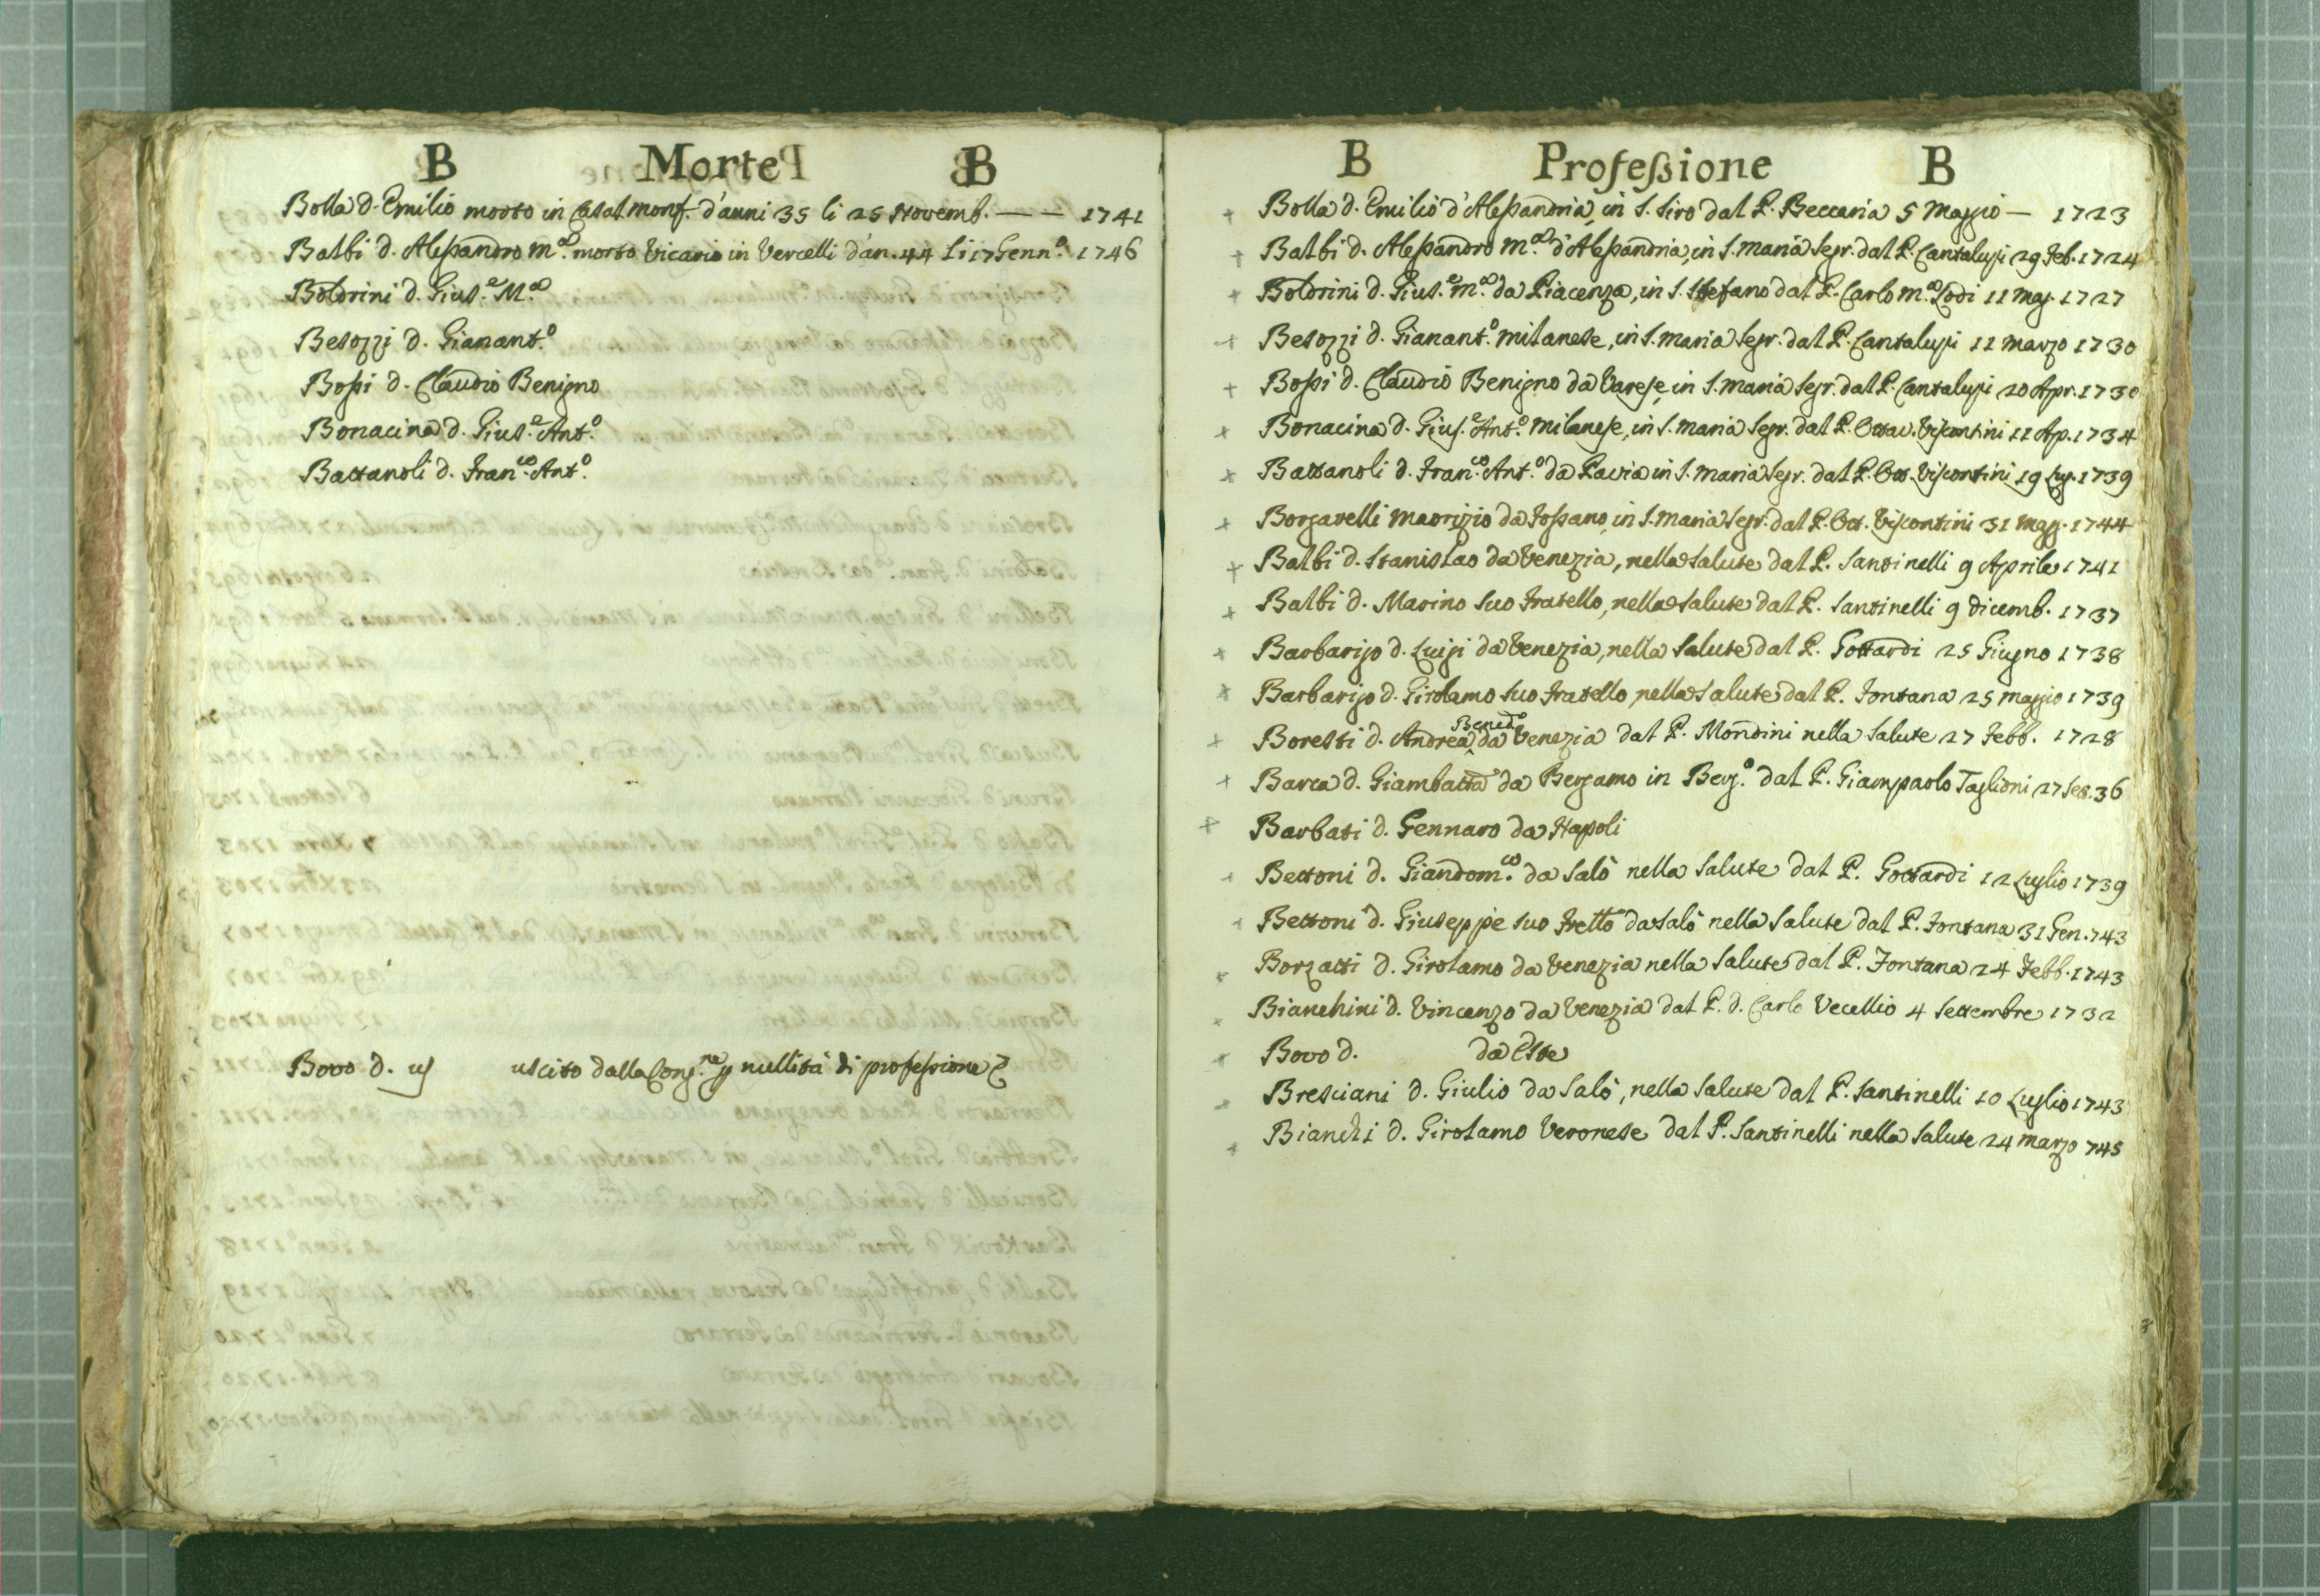 B Morte B
Bolla d. Emilio morto in Casal monf. d'anni 35 li 25 Novemb. — — 1741
Balbi d. Aleßandro m.ª morto Vicario in Vercelli d'an. 44 li 17 Genn.º 1746
Boldrini d. Gius.e M.ª
Besozzi d. Gianant.º
Boßi d. Claudio Benigno
Bonacina d. Gius.e Ant.º
Battanoli d. Fran.co Ant.º
Bovo d. uscito dalla Cong.ne p nullità di profeßione
B Profeßione B
+ Bolla d. Emilio d'Aleßandria, in S. Siro dal P. Beccaria 5 Maggio — 1723
+ Balbi d. Aleßandro m.ª d'Aleßandria, in S. Maria Segr. dal P. Cantalupi 29 Feb. 1724
+ Boldrini d. Gius.e m.ª da Piacenza, in S. Stefano dal P. Carlo m.ª Lodi 11 Mag. 1727
+ Besozzi d. Gianant.º Milanese, in S. Maria Segr. dal P. Cantalupi 12 Marzo 1730
+ Boßi d. Claudio Benigno da Varese, in S. Maria Segr. dal P. Cantalupi 20 Apr. 1730
+ Bonacina d. Gius.e Ant.º Milanese, in S. Maria Segr. dal P. Ottav. Viscontini 11 Ap. 1734
+ Battanoli d. Fran.co Ant.º da Pavia in S. Maria Segr. dal P. Ott. Viscontini 19 Lug. 1739
+ Borgarelli Maorizio da Foßano, in S. Maria Segr. dal P. Ott. Viscontini 31 Magg. 1744
+ Balbi d. Stanislao da Venezia, nella Salute dal P. Santinelli 9 Aprile 1741
+ Balbi d. Marino suo fratello, nella Salute dal P. Santinelli 9 dicemb. 1737
+ Barbarigo d. Luigi da Venezia, nella Salute dal P. Gottardi 25 Giugno 1738
+ Barbarigo d. Girolamo suo fratello, nella Salute dal P. Fontana 25 Maggio 1739
+ Boretti d. Andrea Bened.º da Venezia dal P. Mondini nella Salute 27 Febb. 1728
+ Barca d. Giambatta da Bergamo in Berg.º dal P. Giampaolo Taglioni 27 Set. 36
+ Barbati d. Gennaro da Napoli
+ Bettoni d. Giandom.co da Salò nella Salute dal P. Gottardi 12 Luglio 1739
+ Bettoni d. Giuseppe suo frello da Salò nella Salute dal P. Fontana 31 Gen. 743
+ Borzatti d. Girolamo da Venezia nella Salute dal P. Fontana 24 Febb. 1743
+ Bianchini d. Vincenzo da Venezia dal P. d. Carlo Vecellio 4 Settembre 1732
+ Bovo d. da Este
+ Bresciani d. Giulio da Salò, nella Salute dal P. Santinelli 10 Luglio 1743
+ Bianchi d. Girolamo Veronese dal P. Santinelli nella Salute 24 Marzo 745